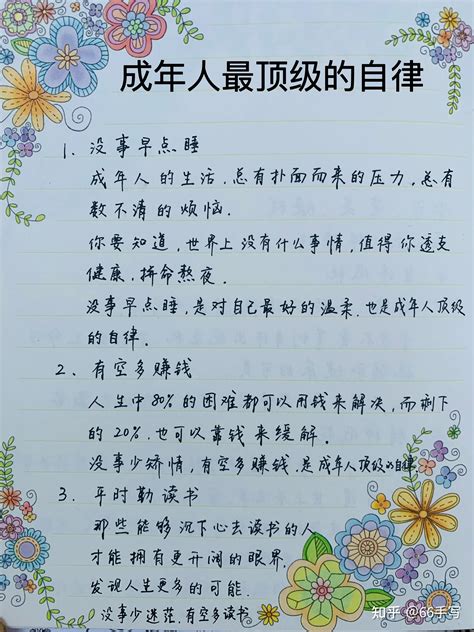 成年人最顶级的自律
1、没事早点睡
成年人的生活,总有扑面而来的压力,总有
数不清的烦恼.
你要知道,世界上没有什么事情,值得你透支
健康,拼命熬夜.
没事早点睡,是对自己最好的温柔.也是成年人顶级
的自律.
2、有空多赚钱
人生中80%的困难都可以用钱来解决,而剩下
的20%.也可以靠钱来缓解.
没事少矫情,有空多赚钱.是成年人顶级的自律
3、平时勤读书
那些能够沉下心去读书的人
才能拥有更开阔的眼界.
发现人生更多的可能.
没事少迷茫.有空多读书
知乎 @66手写